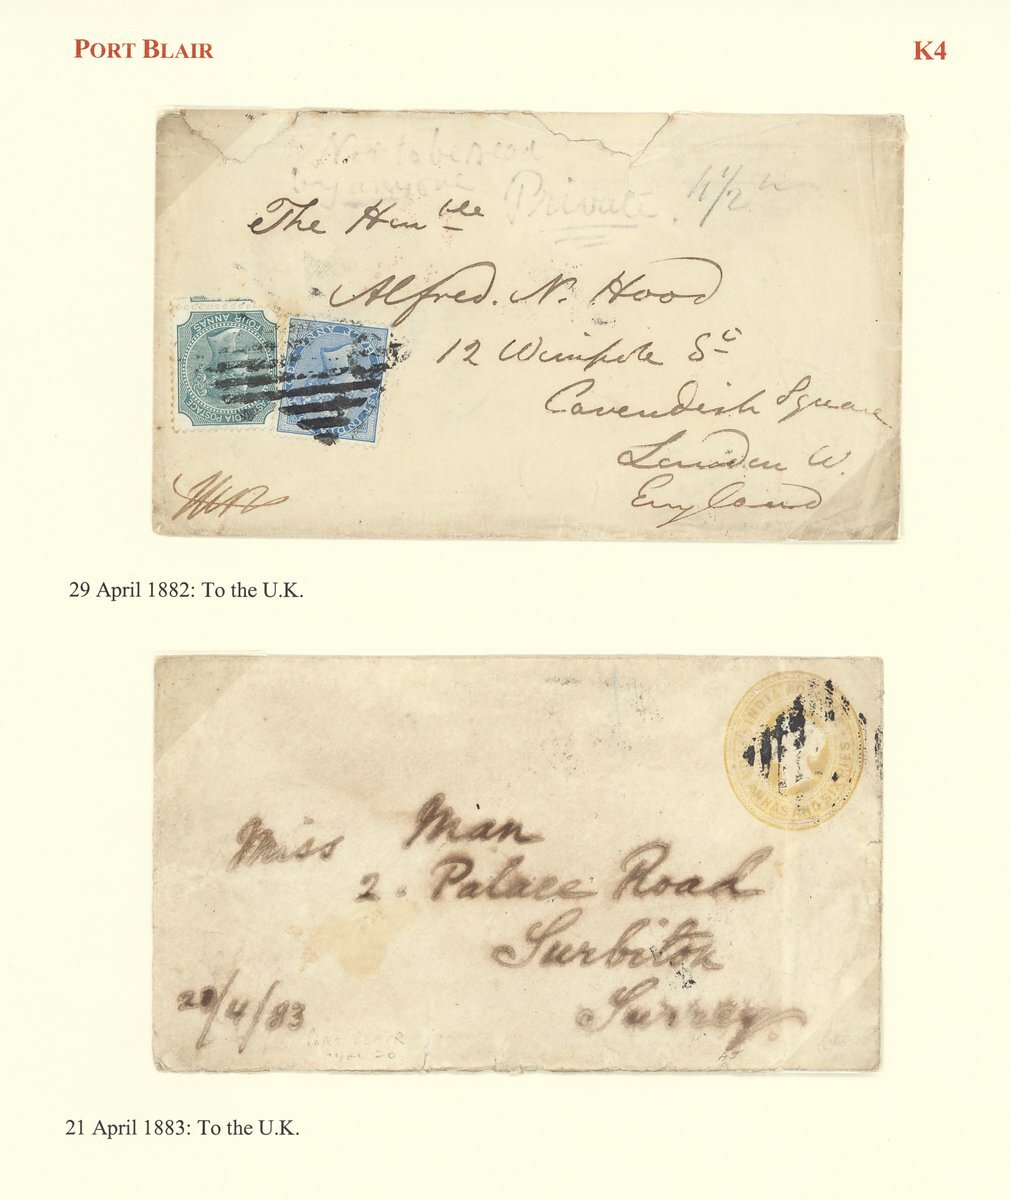 PORT BLAIR
K4
Not to be read
by anyone
Private.
4½
The Honble
Alfred. N. Hood
12 Wimpole St
Cavendish Square
London W.
England
FOUR ANNAS
INDIA POSTAGE
HALF ANNA
EAST INDIA
29 April 1882: To the U.K.
INDIA
ANNAS AND SIX PIES
Miss Man
2. Palace Road
Surbiton
Surrey
21/4/83
PORT BLAIR
TYPE 20
21 April 1883: To the U.K.